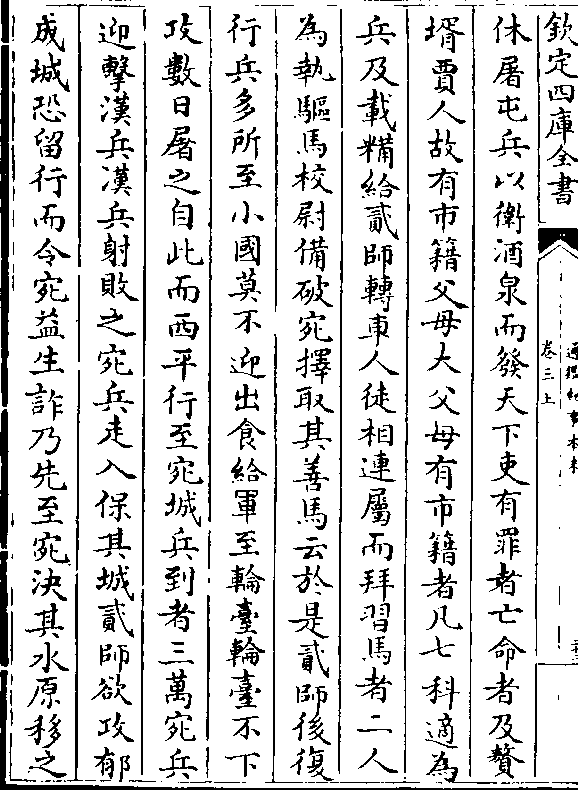 欽定四庫全書
卷三上
休屠屯兵以衛酒泉而發天下吏有罪者亡命者及贅
壻賈人故有市籍父母大父母有市籍者凡七科適為
兵及載糒給貳師轉車人徒相連屬而拜習馬者二人
為執驅馬校尉備破宛擇取其善馬云於是貳師後復
行兵多所至小國莫不迎出食給軍至輪臺輪臺不下
攻數日屠之自此而西平行至宛城兵到者三萬宛兵
迎擊漢兵漢兵射敗之宛兵走入保其城貳師欲攻郁
成城恐留行而令宛益生詐乃先至宛決其水原移之